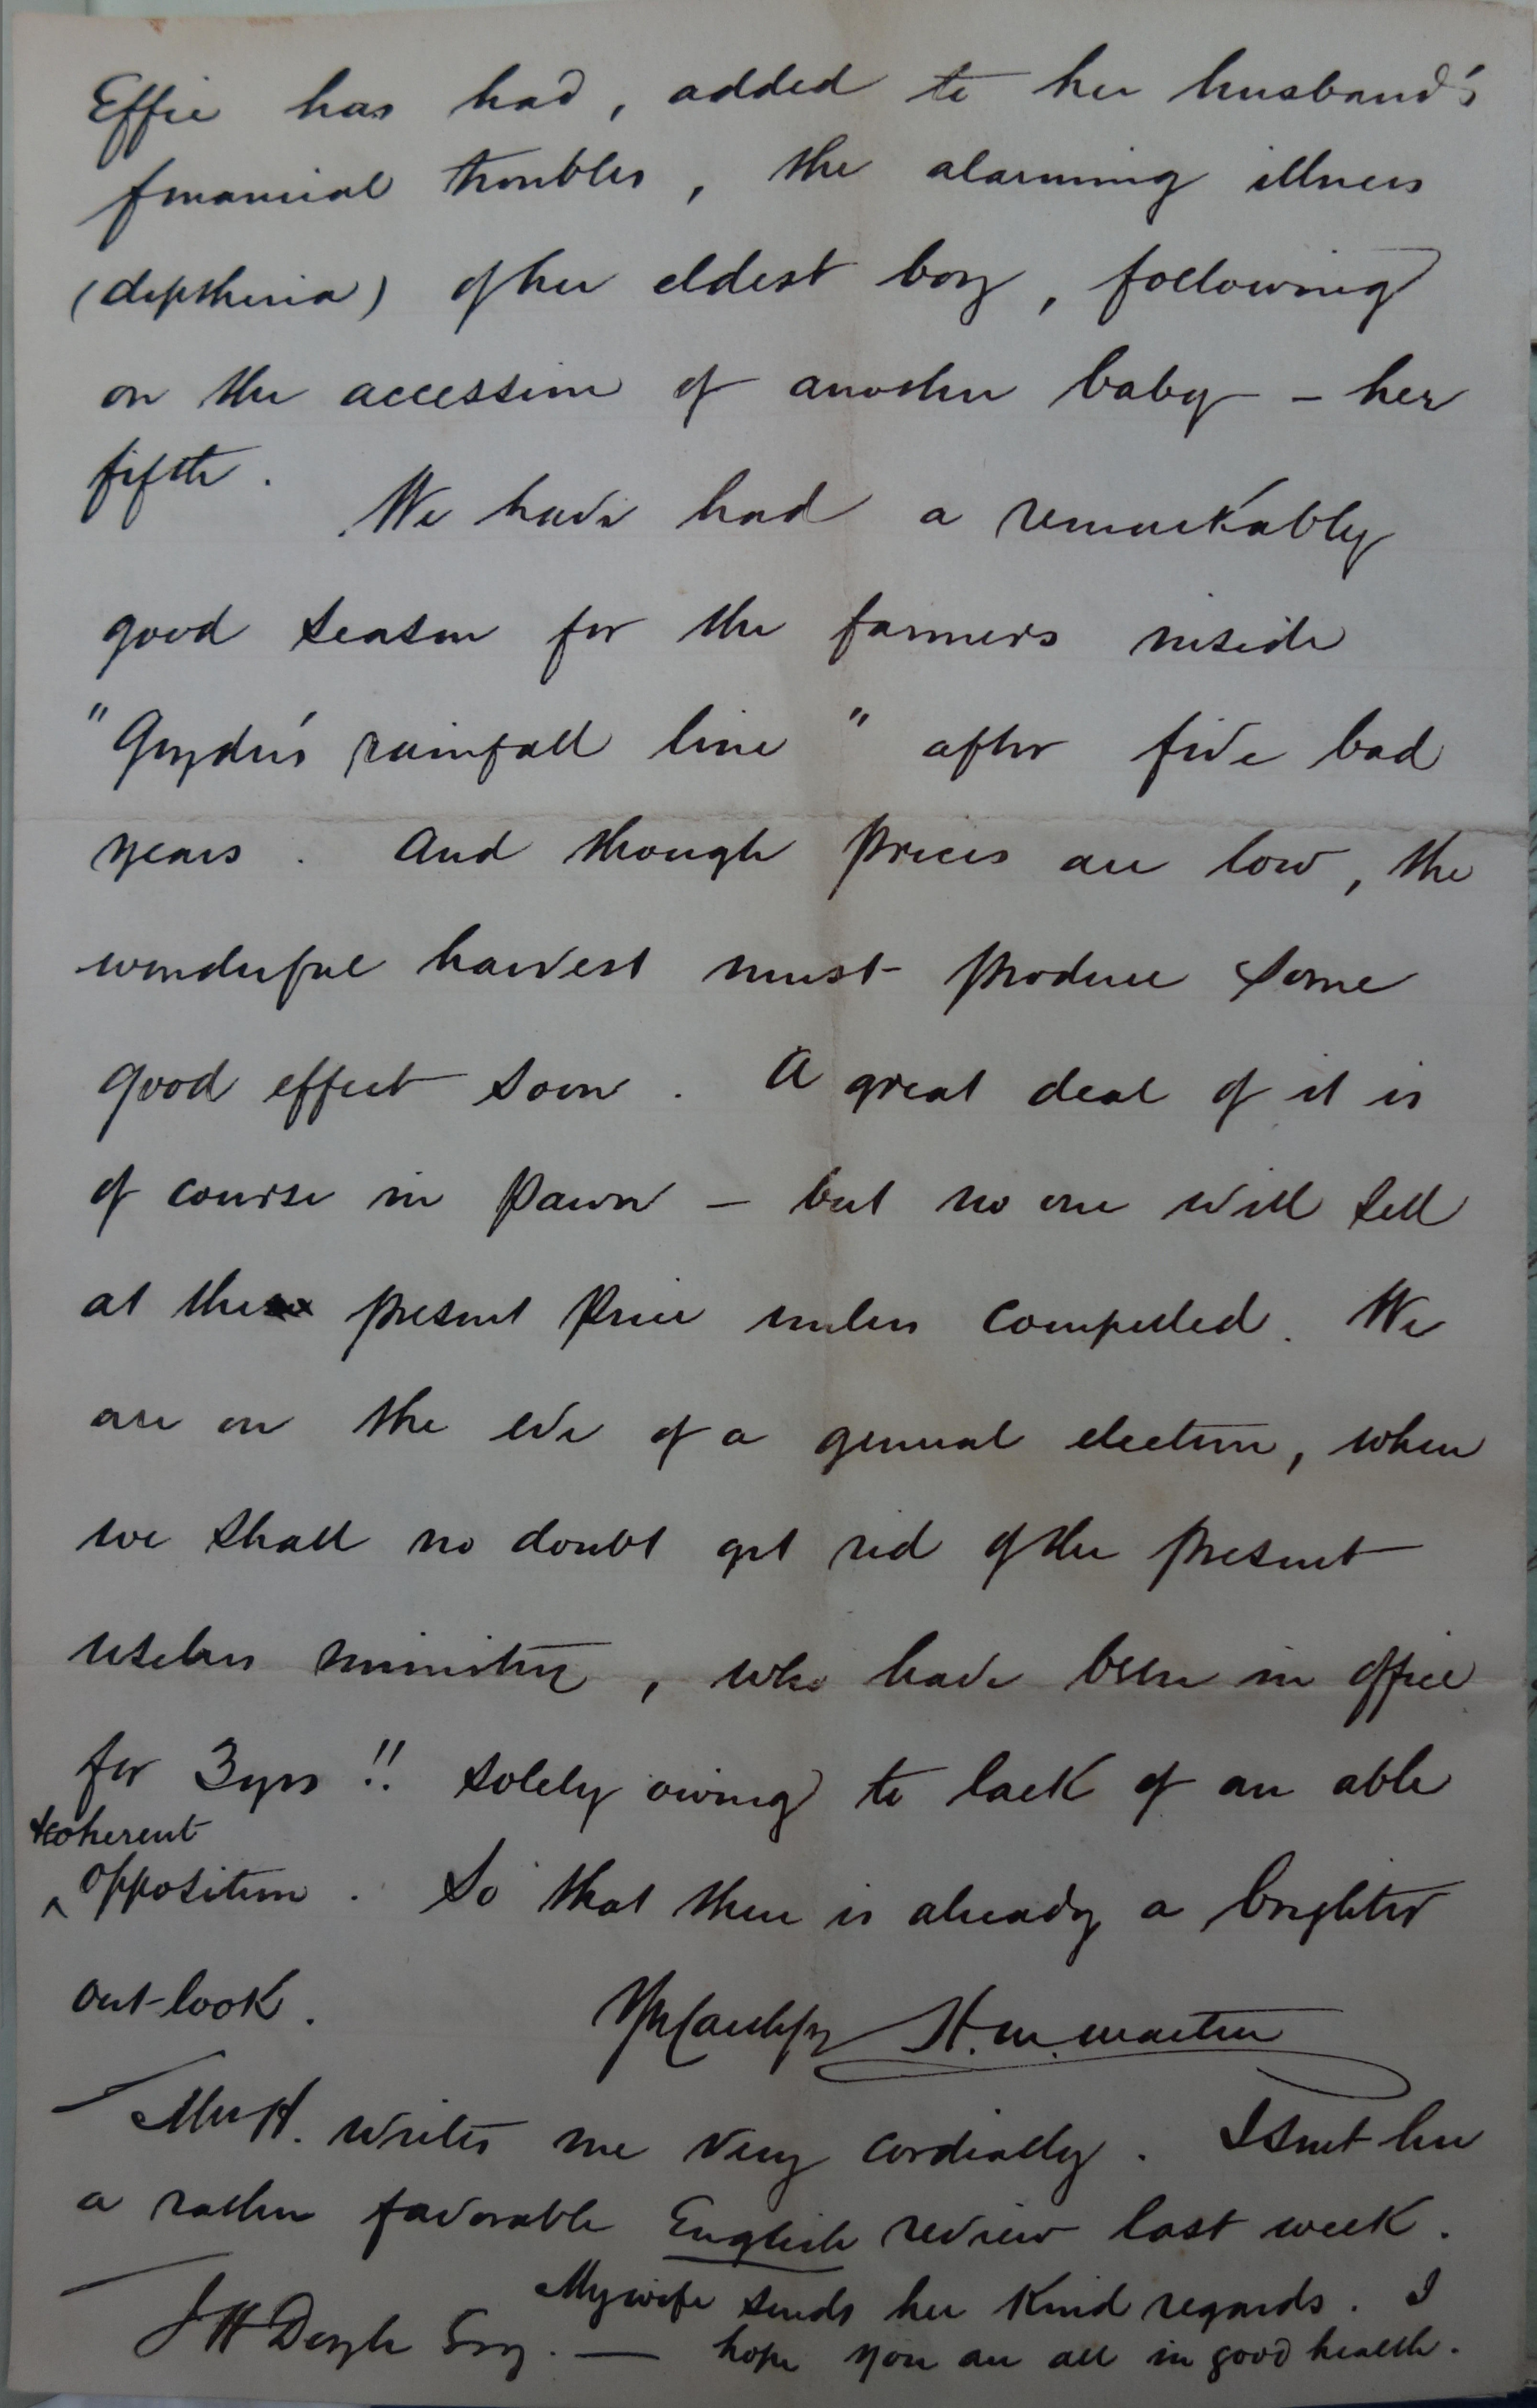 Effie has had, added to her husband's
financial troubles, the alarming illness
(diptheria) of her eldest boy, following
on the accession of another baby – her
fifth.
We have had a remarkably
good season for the farmers inside
"Goyder's rainfall line" after five bad
years. And though prices are low, the
wonderful harvest must produce some
good effect soon. A great deal of it is
of course in pawn – but no one will sell
at the present price unless compelled. We
are on the eve of a general election, when
we shall no doubt get rid of the present
useless ministry, who have been in office
for 3 yrs!! solely owing to lack of an able
& coherent
opposition. So that there is already a brighter
out-look.
H. M. Martin
Mrs H. writes me very cordially. I sent her
a rather favorable English review last week.
My wife sends her kind regards. I
hope you are all in good health.
J H Doyle Esq. —